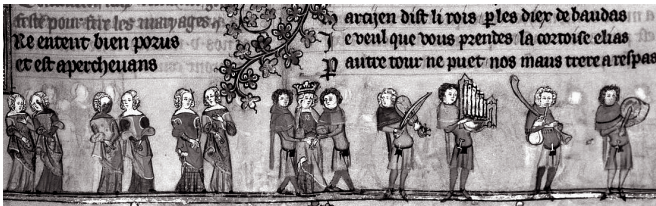 feste pour fere les mariages
Ne entent bien porus
et est apercheuans
arcijen dist li rois p les diex de baudas
e veul que vous prendes la cortoise elias
P autre tour ne puet nos maus trere a respas